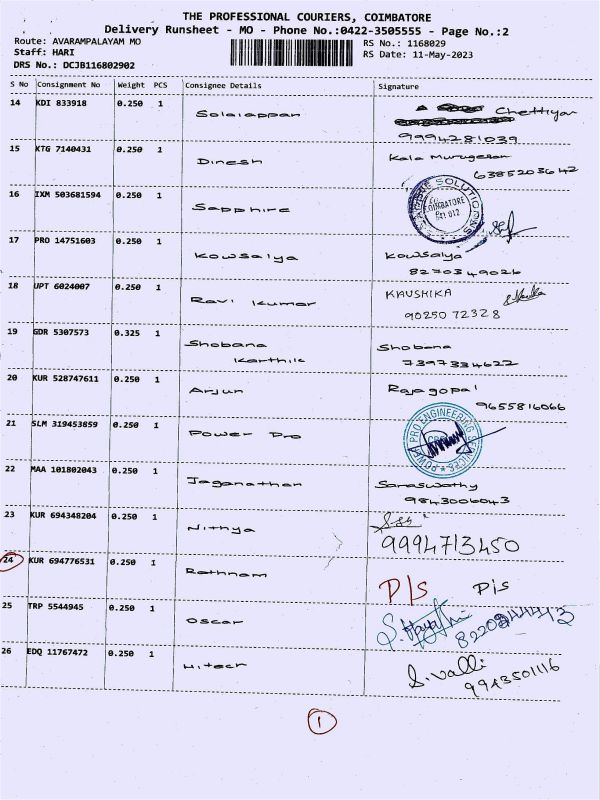 THE PROFESSIONAL COURIERS, COIMBATORE
Delivery Runsheet - MO - Phone No.:0422-3505555 - Page No.:2
Route: AVARAMPALAYAM MO RS No.: 1168029
Staff: HARI RS Date: 11-May-2023
DRS No.: DCJB116802902
S No Consignment No Weight PCS Consignee Details Signature
14 KDI 833918 0.250 1 Solaiappan Chettiyar
9994281039
15 KTG 7140431 0.250 1 Dinesh Kala Murugesan
6385203642
16 IXM 503681594 0.250 1 Sapphire SOLUTIONS COIMBATORE
17 PRO 14751603 0.250 1 Kowsalya Kowsalya
8270349026
18 UPT 6024007 0.250 1 Ravi Kumar KAUSHIKA
90250 72328
19 GDR 5307573 0.325 1 Shobana Shobana
Karthik 7397334622
20 KUR 528747611 0.250 1 Arjun Rajagopal
9655816066
21 SLM 319453859 0.250 1 Power Pro POWER PRO ENGINEERING SERVICES
22 MAA 101802043 0.250 1 Jaganathan Saraswathy
9843006043
23 KUR 694348204 0.250 1 Nithya
9994713450
24 KUR 694776531 0.250 1 Rathnam D/S D/S
25 TRP 5544945 0.250 1 Oscar
26 EDQ 11767472 0.250 1 Hitech S. Valli
9943501116
1